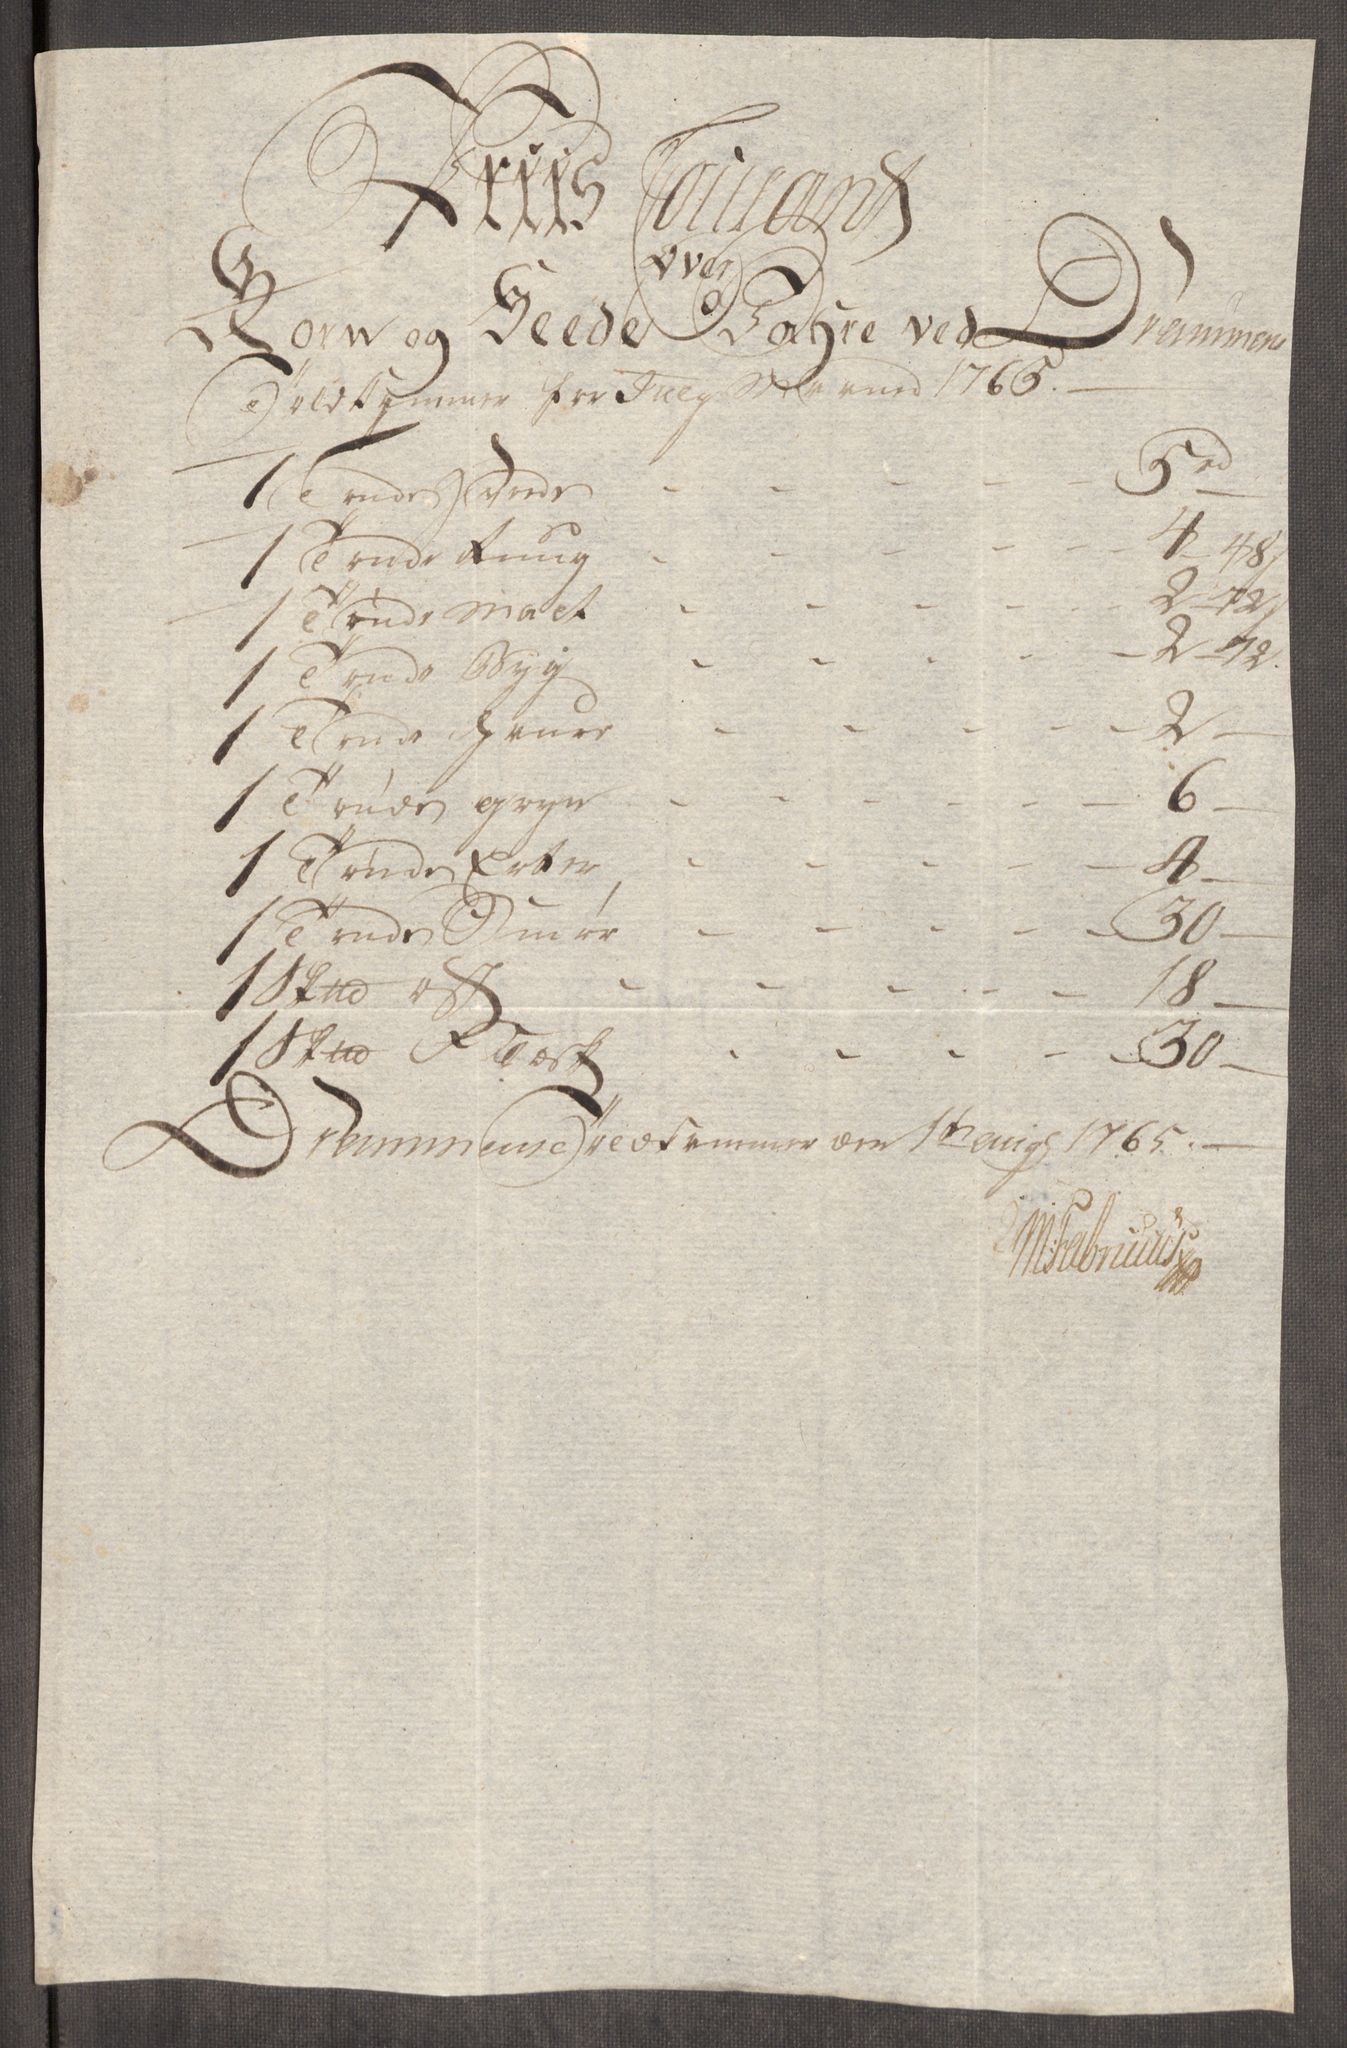 Priis Courant
over
Korn og Feede Vahre ved Drammens
Toldkammer for July Maaned 1765.
1 Tønde Hvede - - - - 5 rd
1 Tønde Rug - - - - 4 - 48
1 Tønde Malt - - - - 2 - 72
1 Tønde Byg - - - - 2 - 72
1 Tønde Haure - - - - 2 -
1 Tønde gryn - - - - 6 -
1 Tønde Erter - - - - 4 -
1 Tønde Smør - - - - 30 -
1 Skud ost - - - - 18 -
1 Skud Flesk - - - - 30 -
Drammens Toldkammer den 1th aug 1765.
M: Fabricius